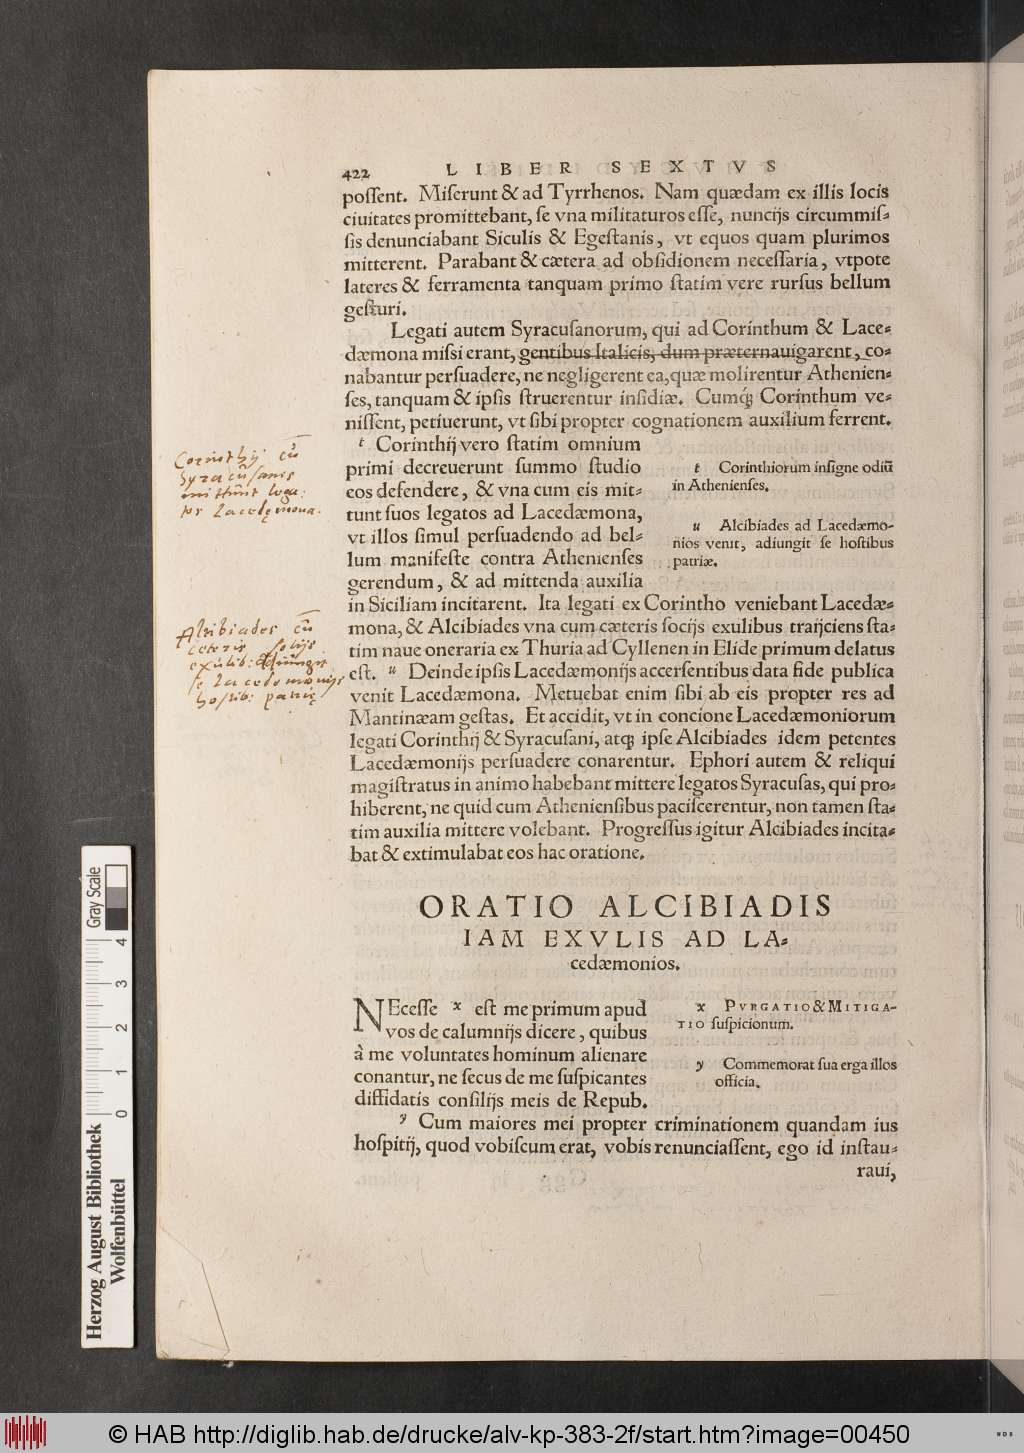 422 LIBER SEXTVS
possent. Miserunt & ad Tyrrhenos. Nam quædam ex illis locis
ciuitates promittebant, se vna militaturos esse, nuncijs circummis-
sis denunciabant Siculis & Egestanis, vt equos quam plurimos
mitterent. Parabant & cætera ad obsidionem necessaria, vtpote
lateres & ferramenta tanquam primo statim vere rursus bellum
gesturi.
Legati autem Syracusanorum, qui ad Corinthum & Lace-
dæmona missi erant, gentibus Italicis, dum præternauigarent, co-
nabantur persuadere, ne negligerent ea, quæ molirentur Athenien-
ses, tanquam & ipsis struerentur insidiæ. Cumq́; Corinthum ve-
nissent, petiuerunt, vt sibi propter cognationem auxilium ferrent.
t Corinthij vero statim omnium
primi decreuerunt summo studio
eos defendere, & vna cum eis mit-
tunt suos legatos ad Lacedæmona,
vt illos simul persuadendo ad bel-
lum manifeste contra Athenienses
gerendum, & ad mittenda auxilia
t Corinthiorum insigne odiũ
in Athenienses.
u Alcibiades ad Lacedæmo-
nios venit, adiungit se hostibus
patriæ.
Corinthij cũ
Syracusanis
mittũnt lega:
tos Lacedęmona.
in Siciliam incitarent. Ita legati ex Corintho veniebant Lacedæ-
mona, & Alcibiades vna cum cæteris socijs exulibus traijciens sta-
tim naue oneraria ex Thuria ad Cyllenen in Elide primum delatus
est. u Deinde ipsis Lacedæmonijs accersentibus data fide publica
venit Lacedæmona. Metuebat enim sibi ab eis propter res ad
Mantinæam gestas. Et accidit, vt in concione Lacedæmoniorum
legati Corinthij & Syracusani, atq; ipse Alcibiades idem petentes
Lacedæmonijs persuadere conarentur. Ephori autem & reliqui
magistratus in animo habebant mittere legatos Syracusas, qui pro-
hiberent, ne quid cum Atheniensibus paciscerentur, non tamen sta-
tim auxilia mittere volebant. Progressus igitur Alcibiades incita-
bat & extimulabat eos hac oratione.
Alcibiades cũ
ceteris socijs
exulib: adiungit
se Lacedemonijs
hostib: patrię
ORATIO ALCIBIADIS
IAM EXVLIS AD LA-
cedæmonios.
NEcesse x est me primum apud
vos de calumnijs dicere, quibus
à me voluntates hominum alienare
conantur, ne secus de me suspicantes
diffidatis consilijs meis de Repub.
x PVRGATIO & MITIGA-
TIO suspicionum.
y Commemorat sua erga illos
officia.
y Cum maiores mei propter criminationem quandam ius
hospitij, quod vobiscum erat, vobis renunciassent, ego id instau-
raui,
Gray Scale
0 1 2 3 4
Herzog August Bibliothek
Wolfenbüttel
© HAB http://diglib.hab.de/drucke/alv-kp-383-2f/start.htm?image=00450